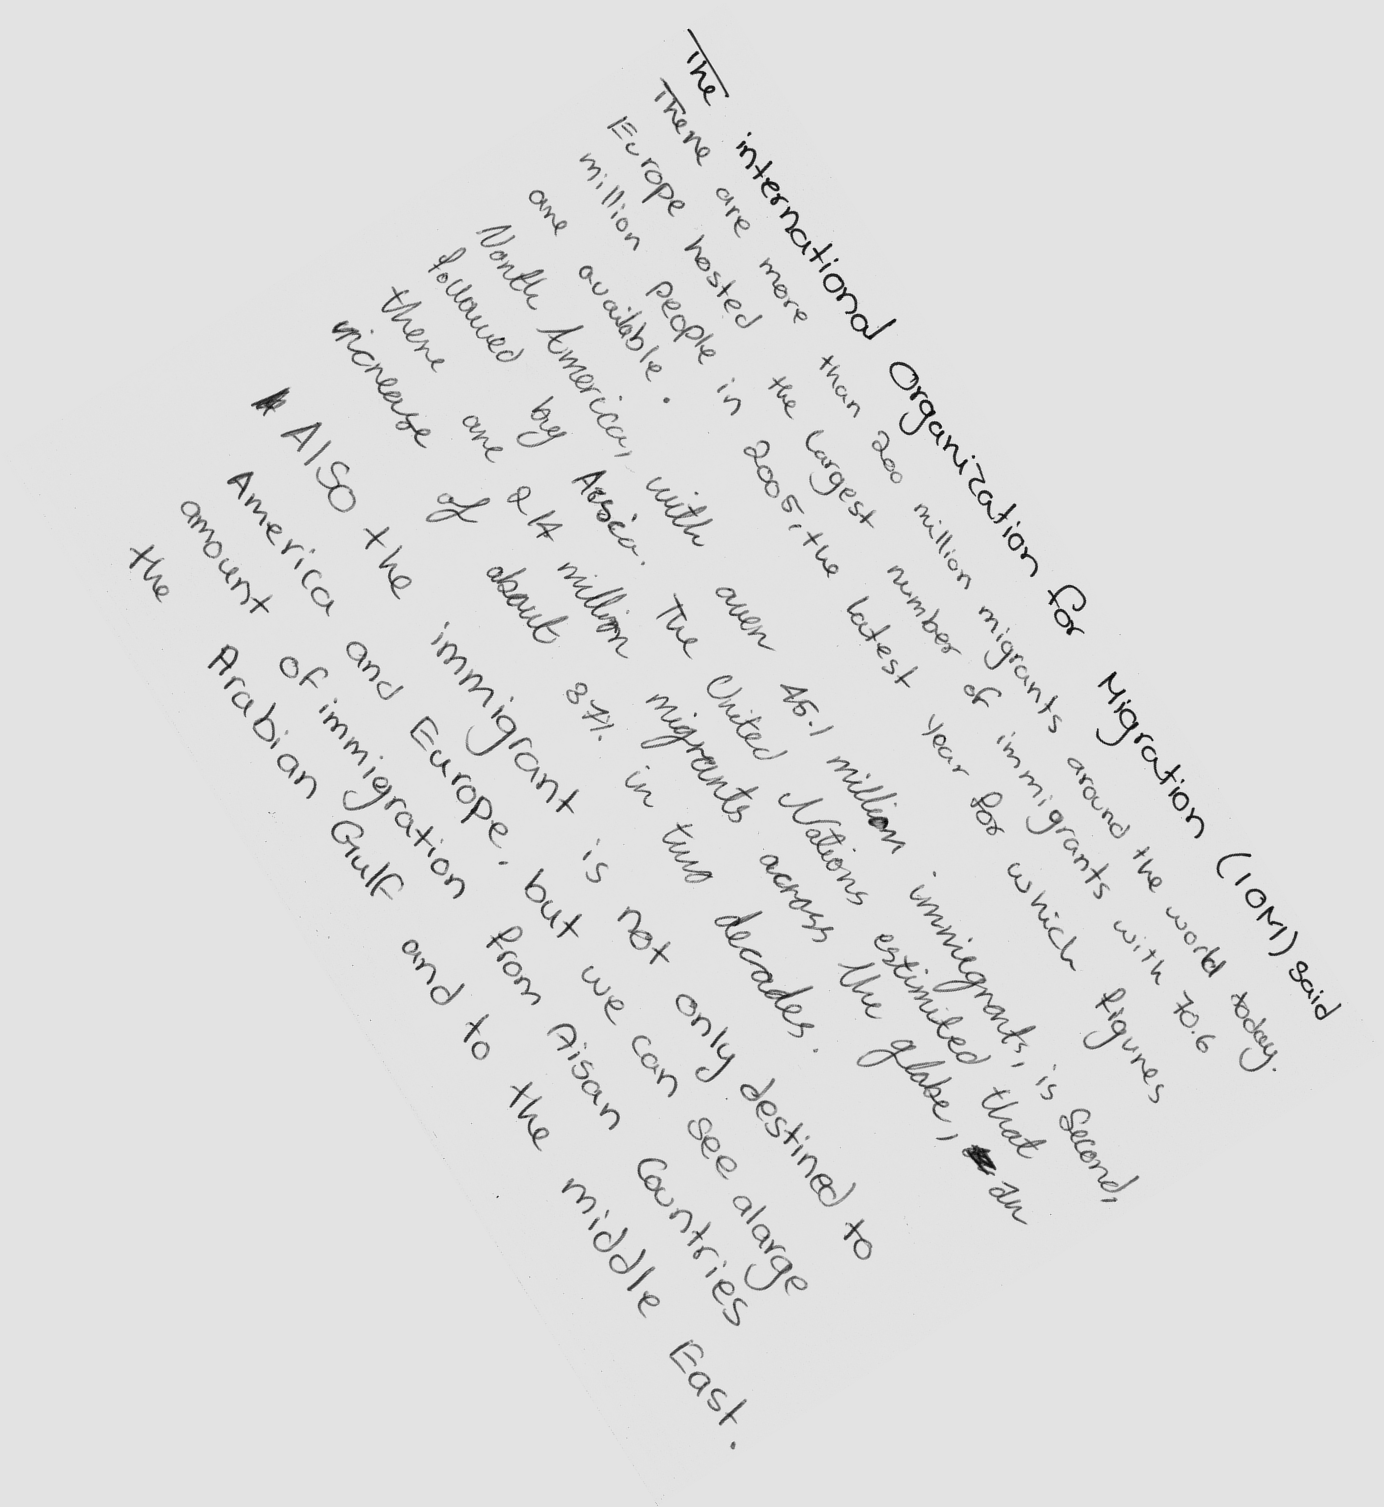 The international Organization for Migration (IOM) said
There are more than 200 million migrants around the world today.
Europe hosted the largest number of immigrants with 70.6
million people in 2005, the latest year for which figures
are available.
North America, with over 45.1 million immigrants, is Second,
followed by Assia. The United Nations estimited that
there are 214 million migrants across the globe, an
increase of about 37% in two decades.
AlSO the immigrant is not only destined to
America and Europe, but we can see alarge
amount of immigration from Aisan Countries
the Arabian Gulf and to the middle East.